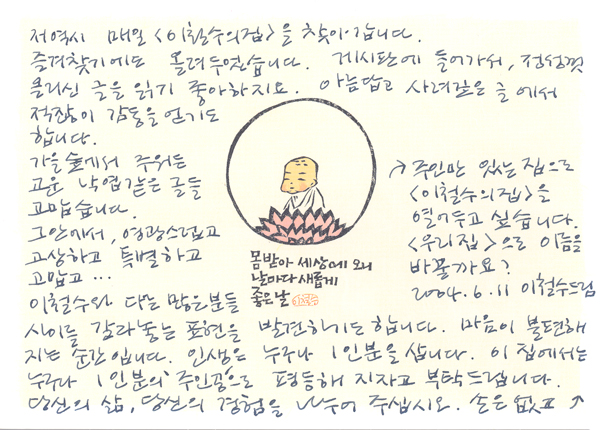 저역시 매일 <이철수의집>을 찾아갑니다.
즐겨찾기에도 올려두었습니다. 게시판에 들어가서, 정성껏
올리신 글을 읽기 좋아하지요. 아름답고 사려깊은 글에서
적잖이 감동을 얻기도
합니다.
가을숲에서 주워든
고운 낙엽같은 글들
고맙습니다.
그안에서, 영광스럽고
고상하고 특별하고
고맙고 …
이철수와 다른 많은분들
사이를 갈라놓는 표현을 발견하기도합니다. 마음이 불편해
지는 순간입니다. 인생은 누구나 1인분을 삽니다. 이 집에서는
누구나 1인분의 주인공으로 평등해 지자고 부탁드립니다.
당신의 삶, 당신의 경험을 나누어 주십시오. 손은 없고 ↗
↗ 주인만 있는 집으로
<이철수의집>을
열어두고 싶습니다.
<우리집>으로 이름을
바꿀까요?
2004.6.11 이철수드림
몸받아 세상에 오니
날마다 새롭게
좋은날